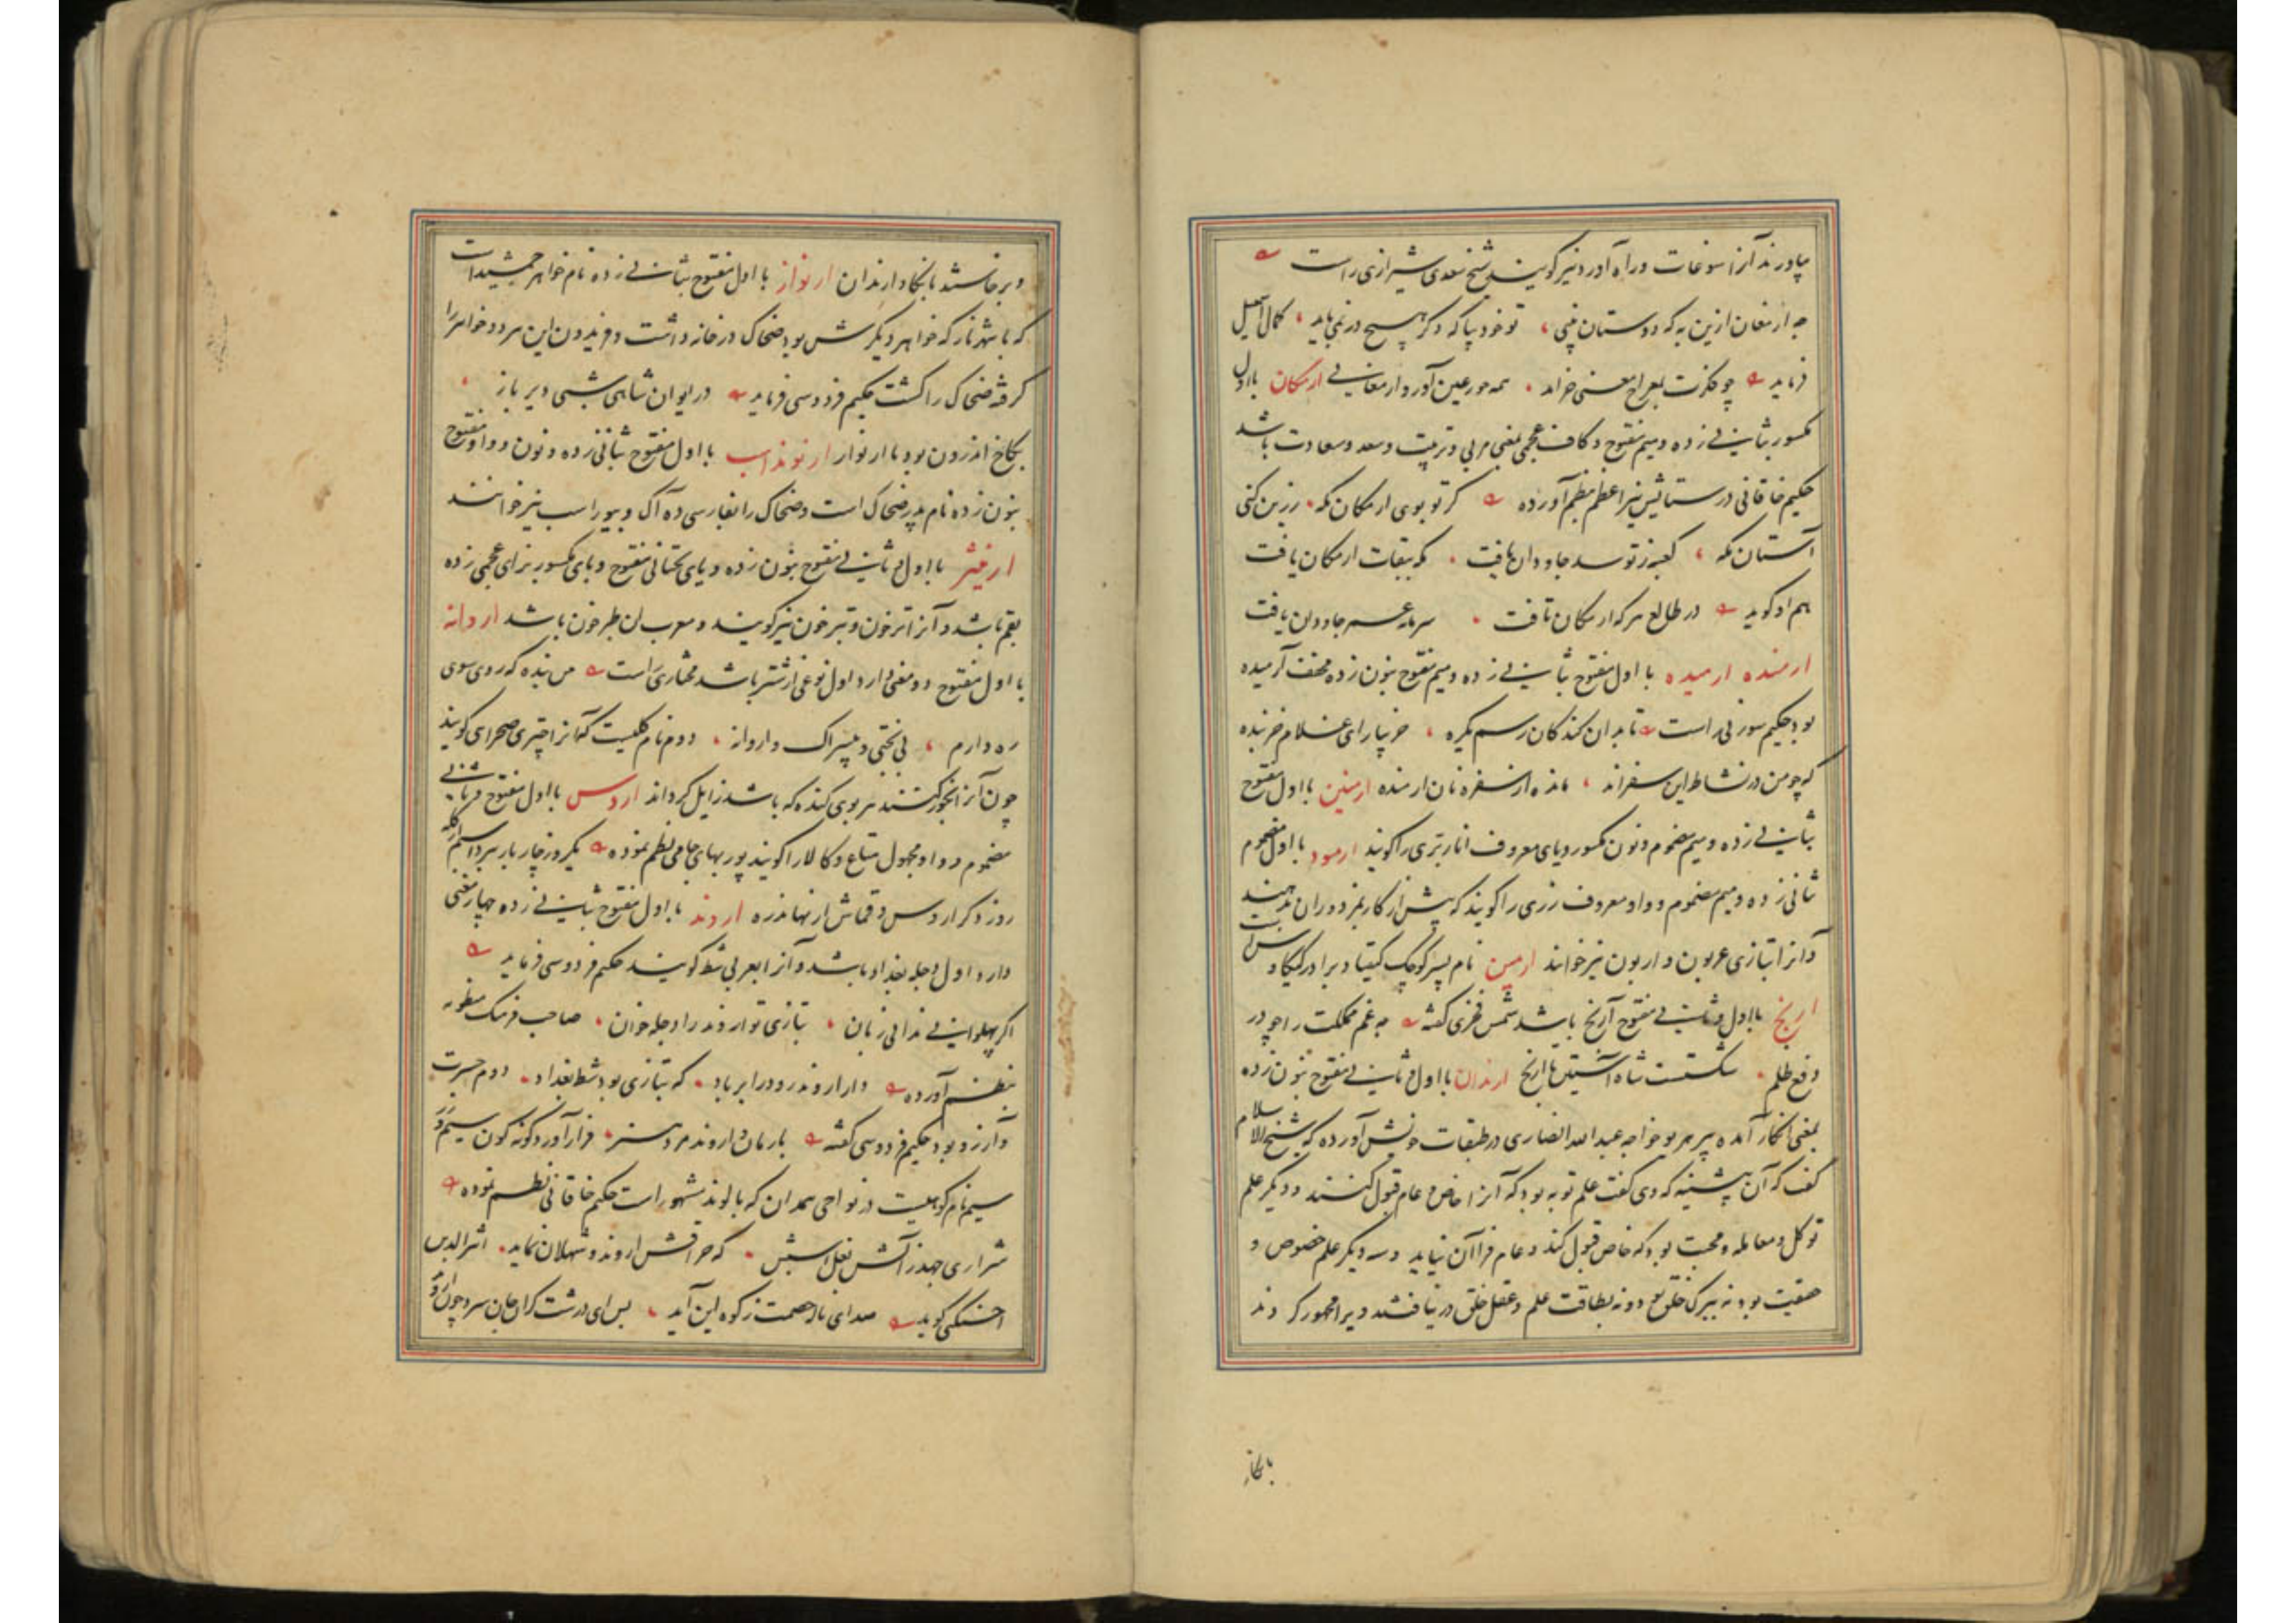 بیاورند آنرا سوغات و راه آورد نیز گویند شیخ سعدی شیرازی راست
چه ارمغان ازین به که دوستان بینی تو خود بیا که دگر هیچ در نمی باید کمال اسمعیل
فرماید چو فکرت بمعراج معنی خرامد همه حور عین آورد ارمغانی ارمگان با اول
مکسور بثانی زده و میم مفتوح و کاف عجمی بمعنی مربی و تربیت و سعد و سعادت باشد
حکیم خاقانی در ستایش نیر اعظم بنظم آورده گر تو بوی ارمگان مکه زرین کنی
آستان مکه کعبه ز تو سد جاودان یافت که بیقات ارمگان یافت
هم او گوید در طالع هر که ارمگان تافت سرمایه عمر جاودان یافت
ارمنده ارمیده با اول مفتوح بثانی زده و میم مفتوح بنون زده مخفف آرمیده
بود حکیم سوزنی راست تا بدان کندگان رسم مکره خر بیارای غلام خربنده
که چو من در نشاط این سفراند مانده از سفره نان ارمنده ارمنین با اول مفتوح
بثانی زده و میم مضموم و نون مکسور و یای معروف انار بری را گویند ارمود با اول مضموم
ثانی زده و میم مضموم و واو معروف زری را گویند که پیش از کار بمزدوران بدهند
و آنرا بتازی عربون و اربون نیز خوانند ارمین نام پسر کوچک کیقباد برادر کیکاوس است
ارنج با اول و ثانی مفتوح آرنج باشد شمس فخری گفته به غم مملکت را چو در
دفع ظلم شکستست شاه آستین تا ارنج ارندان با اول و ثانی مفتوح بنون زده
بمعنی انکار آمده پیر هری خواجه عبدالله انصاری در طبقات خویش آورده که شیخ الاسلام
گفت که آن پیشینه که دی گفت علم توبه بود که آنرا خاص و عام قبول کنند و دیگر علم
توکل و معامله و محبت بود که خاص قبول کند و عام فرا آن نیاید و سه دیگر علم خصوص و
حقیقت بود نه بیرک خلق بود و نه بطاقت علم و عقل خلق در نیافتند ویرا مهجور کردند
بانکار
و برخاستند بانکار ارندان ارنواز با اول مفتوح بثانی زده نام خواهر جمشید است
که با شهرناز که خواهر دیگرش بود ضحاک در خانه داشت و فریدون این هر دو خواهر را
گرفته ضحاک را کشت حکیم فردوسی فرماید در ایوان شاهی شبی دیر باز
بکاخ اندرون بود با ارنواز ارنونداسب با اول مفتوح بثانی زده و نون و واو مفتوح
بنون زده نام پدر ضحاک است و ضحاک را بفارسی ده آک و بیوراسب نیز خوانند
با اول و ثانی مفتوح بنون زده و یای تحتانی مفتوح و بای مکسور بزای عجمی زده
بقم باشد و آنرا ترخون و تبرخون نیز گویند و معرب آن طبرخون باشد اروانه
با اول مفتوح دو معنی دارد اول نوعی از شتر باشد مختاری راست من بنده که روی سوی
ره دارم بی بختی و بیسراک و اروانه دوم نام گلیست که آنرا خیری صحرائی گویند
چون آنرا بخور کنند هر بوی گنده که باشد زایل گرداند اروس با اول مفتوح و ثانی
مضموم و واو مجهول متاع و کالا را گویند پوربهای جامی نظم نموده یکروز چار بار ببرد اسم از گله
روز دگر اروس و قماش از نهاندره اروند با اول مفتوح بثانی زده چهار معنی
دارد اول دجله بغداد باشد و آنرا بعربی شط گویند حکیم فردوسی فرماید
اگر پهلوانی ندانی زبان بتازی تو اروند را دجله خوان صاحب فرهنگ منظومه
بنظم آورده دار اروند رود را بر یاد که بتازی بود شط بغداد دوم حسرت
و آرزو بود حکیم فردوسی گفته بارمان و اروند مرد هنر فراز آورد گونه گون سیم و زر
سیم نام کوهیست در نواحی همدان که بالوند مشهور است حکیم خاقانی نظم نموده
شراری جهد ز آتش نعل اسبش که حراقش اروند و شهلان نماید اثیرالدین
اخسیکتی گوید صدای ناله حصمت ز کوه این آید بس ای درشت گران جان سرد چون اروند